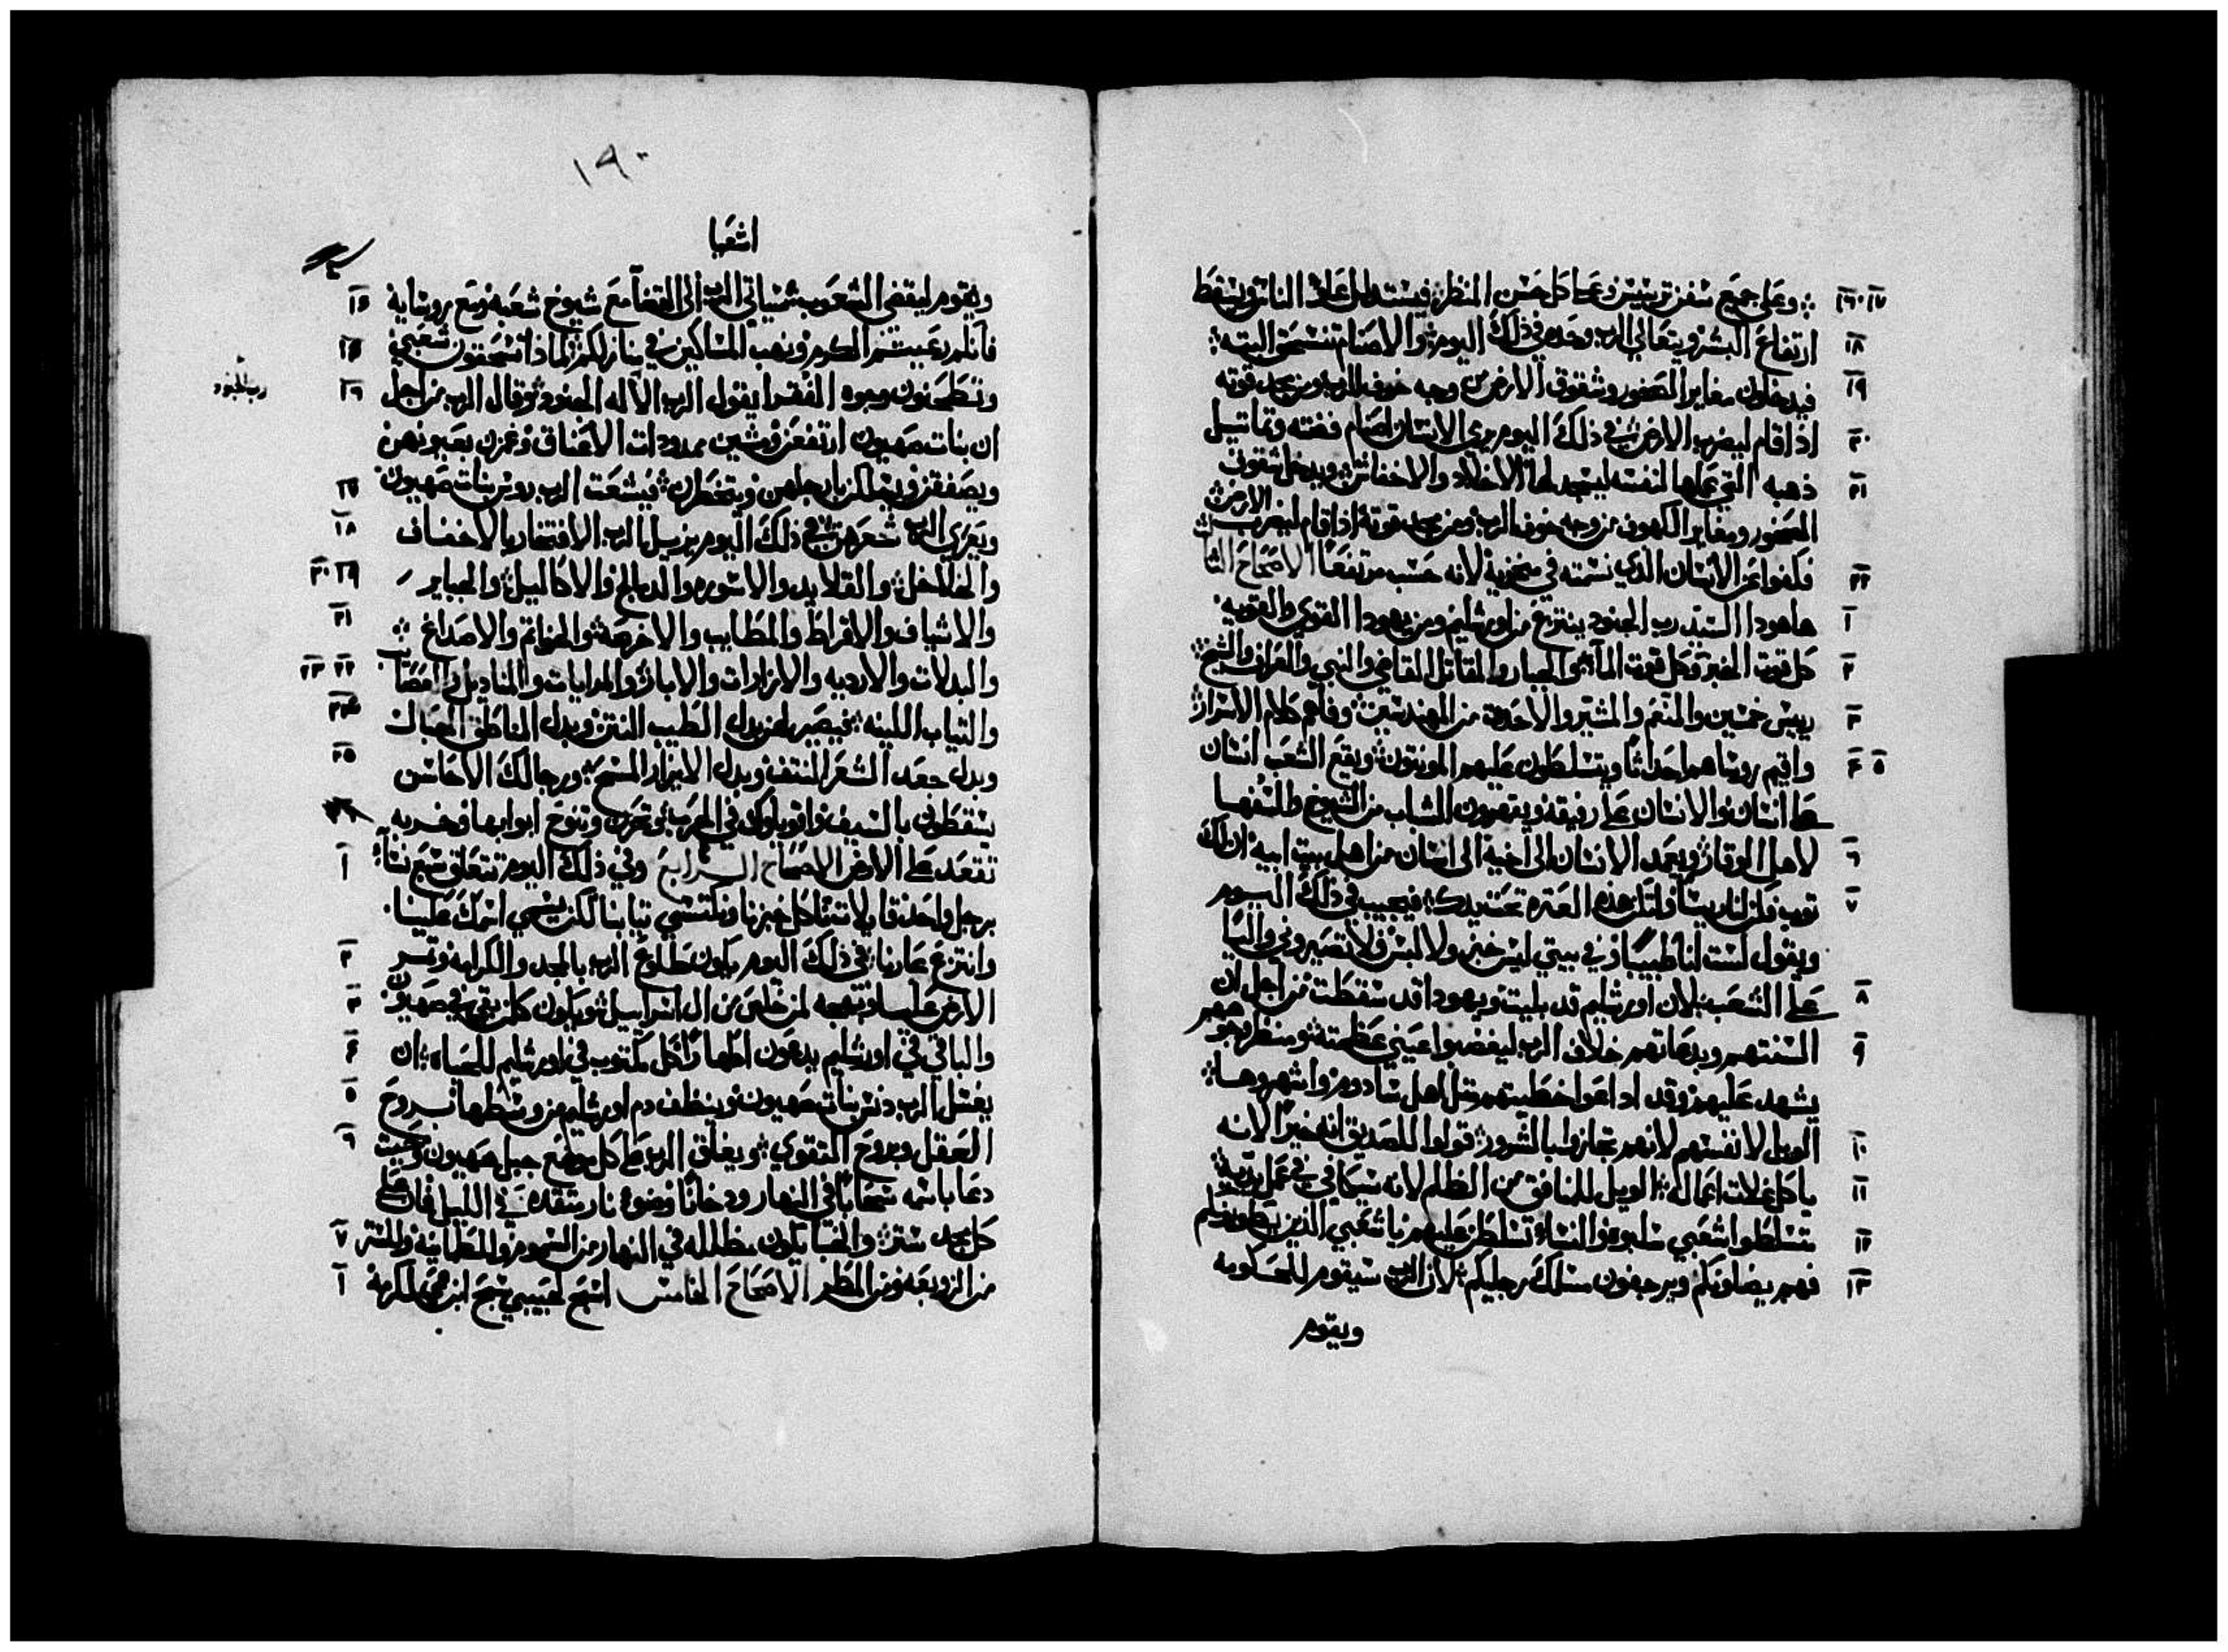 ١٦٠١٧ وعلى جميع سفن ترسيس وعلى كل حسن المنظر فيستدلل علا الناس ويسقط
١٨ ارتفاع البشر ويتعالي الرب وحده في ذلك اليوم والاصنام تنسحق البته
١٩ فيدخلون مغاير الصخور وشقوق الارض من وجه خوف الرب ومن مجد قوته
٢٠ اذا قام ليضرب الارض في ذلك اليوم يرمي الانسان اصنام فضته وتماتيل
٢١ ذهبه التي عملها لنفسه ليسجد لها الاخلاد والاخفاش ويدخل شقوق
الصخور ومغاير الكهوف من وجه خوف الرب ومن مجد قوته اذا قام ليضرب الارض
٢٢ فكفوا عن الانسان الذي نسمته في منخريه لانه حسب مرتفعا الاصحاح الثالث
١ هاهودا السيد رب الجنود ينتزع من اورشليم ومن يهودا القوي والقويه
٢ كل قوت الخبز وكل قوت الما الجبار والمقاتل القاضي والنبي والعراف والشيخ
٣ رييس خمسين والمنعم والمشير والاحدق من المهندسين وفاهم كلام الاسرار
٤ ٥ واقيم روساهم احداثا ويتسلطون عليهم المونتون ويقع الشعب انسان
على انسان والانسان على رفيقه ويتعرون الشاب من الشيوخ والسفها
٦ لاهل الوقار ويعمد الانسان الى اخيه الى انسان من اهل بيت ابيه ان لك
٧ توب فكن لنا رييسا ولتكن هذه العتره تحت يدك فيجيب في ذلك اليوم
ويقول لست انا طبيبا وفي بيتي ليس خبز ولا لبس فلا تصيروني واليا
٨ على الشعب لان اورشليم قد بليت ويهودا قد سقطت من اجل ان
٩ السنتهم وبدعاتهم خلاف الرب ليغضبوا عيني عظمته ومنظر وجوههم
يشهد عليهم وقد اداعوا خطيتهم متل اهل سادوم واشهروها
١٠ الويل لانفسهم لانهم تجازوا بالشرور قولوا للصديق انه خيرا لانه
١١ ياكل غلات اعماله الويل للمنافق من الظلم لانه سيكافي في عمل يديه
١٢ متسلطوا شعبي سلبوه والنساء تسلطن عليهم يا شعبي الذين يعطونكم
١٣ فهم يضلونكم ويرجفون مسلك رجليكم لان الرب سيقوم للحكومه
ويقوم
١٩٠
اشعيا
١٤ ويقوم ليقضي الشعوب سياتي الرب الى القضا مع شيوخ شعبه ومع روسايه
١٥ فانكم رعيتم الكرم ونهب المساكين في منازلكم لماذا تسحقون شعبي
١٦ وتطحنون وجوه الفقرا يقول الرب الاله الجنود وقال الرب من اجل
رب الجنود
ان بنات صهيون ارتفعن ومشين ممدودات الاعناق وغمزن بعيونهن
١٧ ويصفقن ويتحركن بارجلهن ويتخطرن فيشعت الرب روس بنات صهيون
١٨ ويعري الرب شعرهن في ذلك اليوم يزيل الرب الافتخار بالاخفاف
١٩ ٢٠ والخلاخل والقلايد والاسوره والدمالج والاكاليل والجباير
٢١ والاشياف والاقراط والمطايب والاخرصه والخواتم والاصداغ
٢٢ ٢٣ والبدلات والارديه والازارات والابار والمرايات والمناديل والعصايب
٢٤ والتياب اللينه فيصير لهن بدل الطيب النتن وبدل المناطق الحبال
٢٥ وبدل جعد الشعر المنتف وبدل الايزار المسح ورجالك الاحاسن
٢٦ يسقطون بالسيف واقوياوك في الحرب وتحزن وتنوح ابوابها وخربه
١ تقعد على الارض الاصحاح الرابع وفي ذلك اليوم تتعلق سبع نساء
برجل واحد قايلات ناكل خبزنا ونكتسي تيابنا لكن يسمي اسمك علينا
٢ وانتزع عارنا في ذلك اليوم يكون طلوع الرب بالمجد والكرامه وتمر
٣ الارض عاليا وبهجه لمن خلص من ال اسراييل ويكون كل من بقي في صهيون
٤ والباقي في اورشليم يدعون اطهارا كل مكتوب في اورشليم للحياه ان
٥ يغسل الرب دنس بنات صهيون وينظف دم اورشليم من وسطها بروح
٦ العقل وبروح التقوي ويغلق الرب على كل موضع جبل صهيون وحيت
دعا باسمه سحابا في النهار ودخانا وضوء نار متقده في الليل فان على
٧ كل مجد ستر والخبا يكون مظلله في النهار من السموم والمطانيه والستر
١ من الزوبعه ومن المطر الاصحاح الخامس اسبح لحبيبي تسبح ابن عمي لكرمه